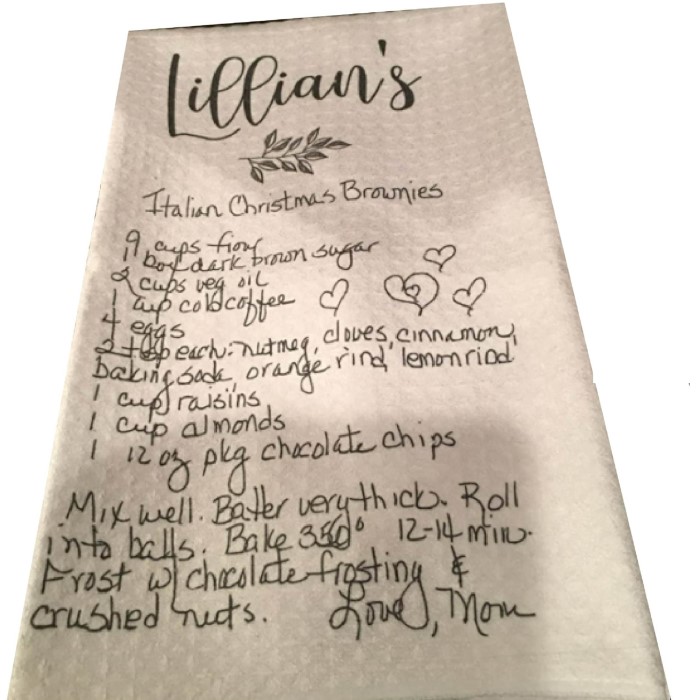 Lillian's
Italian Christmas Brownies
9 cups flour
1 box dark brown sugar
2 cups veg oil
1 cup cold coffee
4 eggs
2 tsp each: nutmeg, cloves, cinnamon,
baking soda, orange rind, lemon rind
1 cup raisins
1 cup almonds
1 12 oz pkg chocolate chips
Mix well. Batter very thick. Roll
into balls. Bake 350° 12-14 min.
Frost w/ chocolate frosting &
crushed nuts. Love, Mom